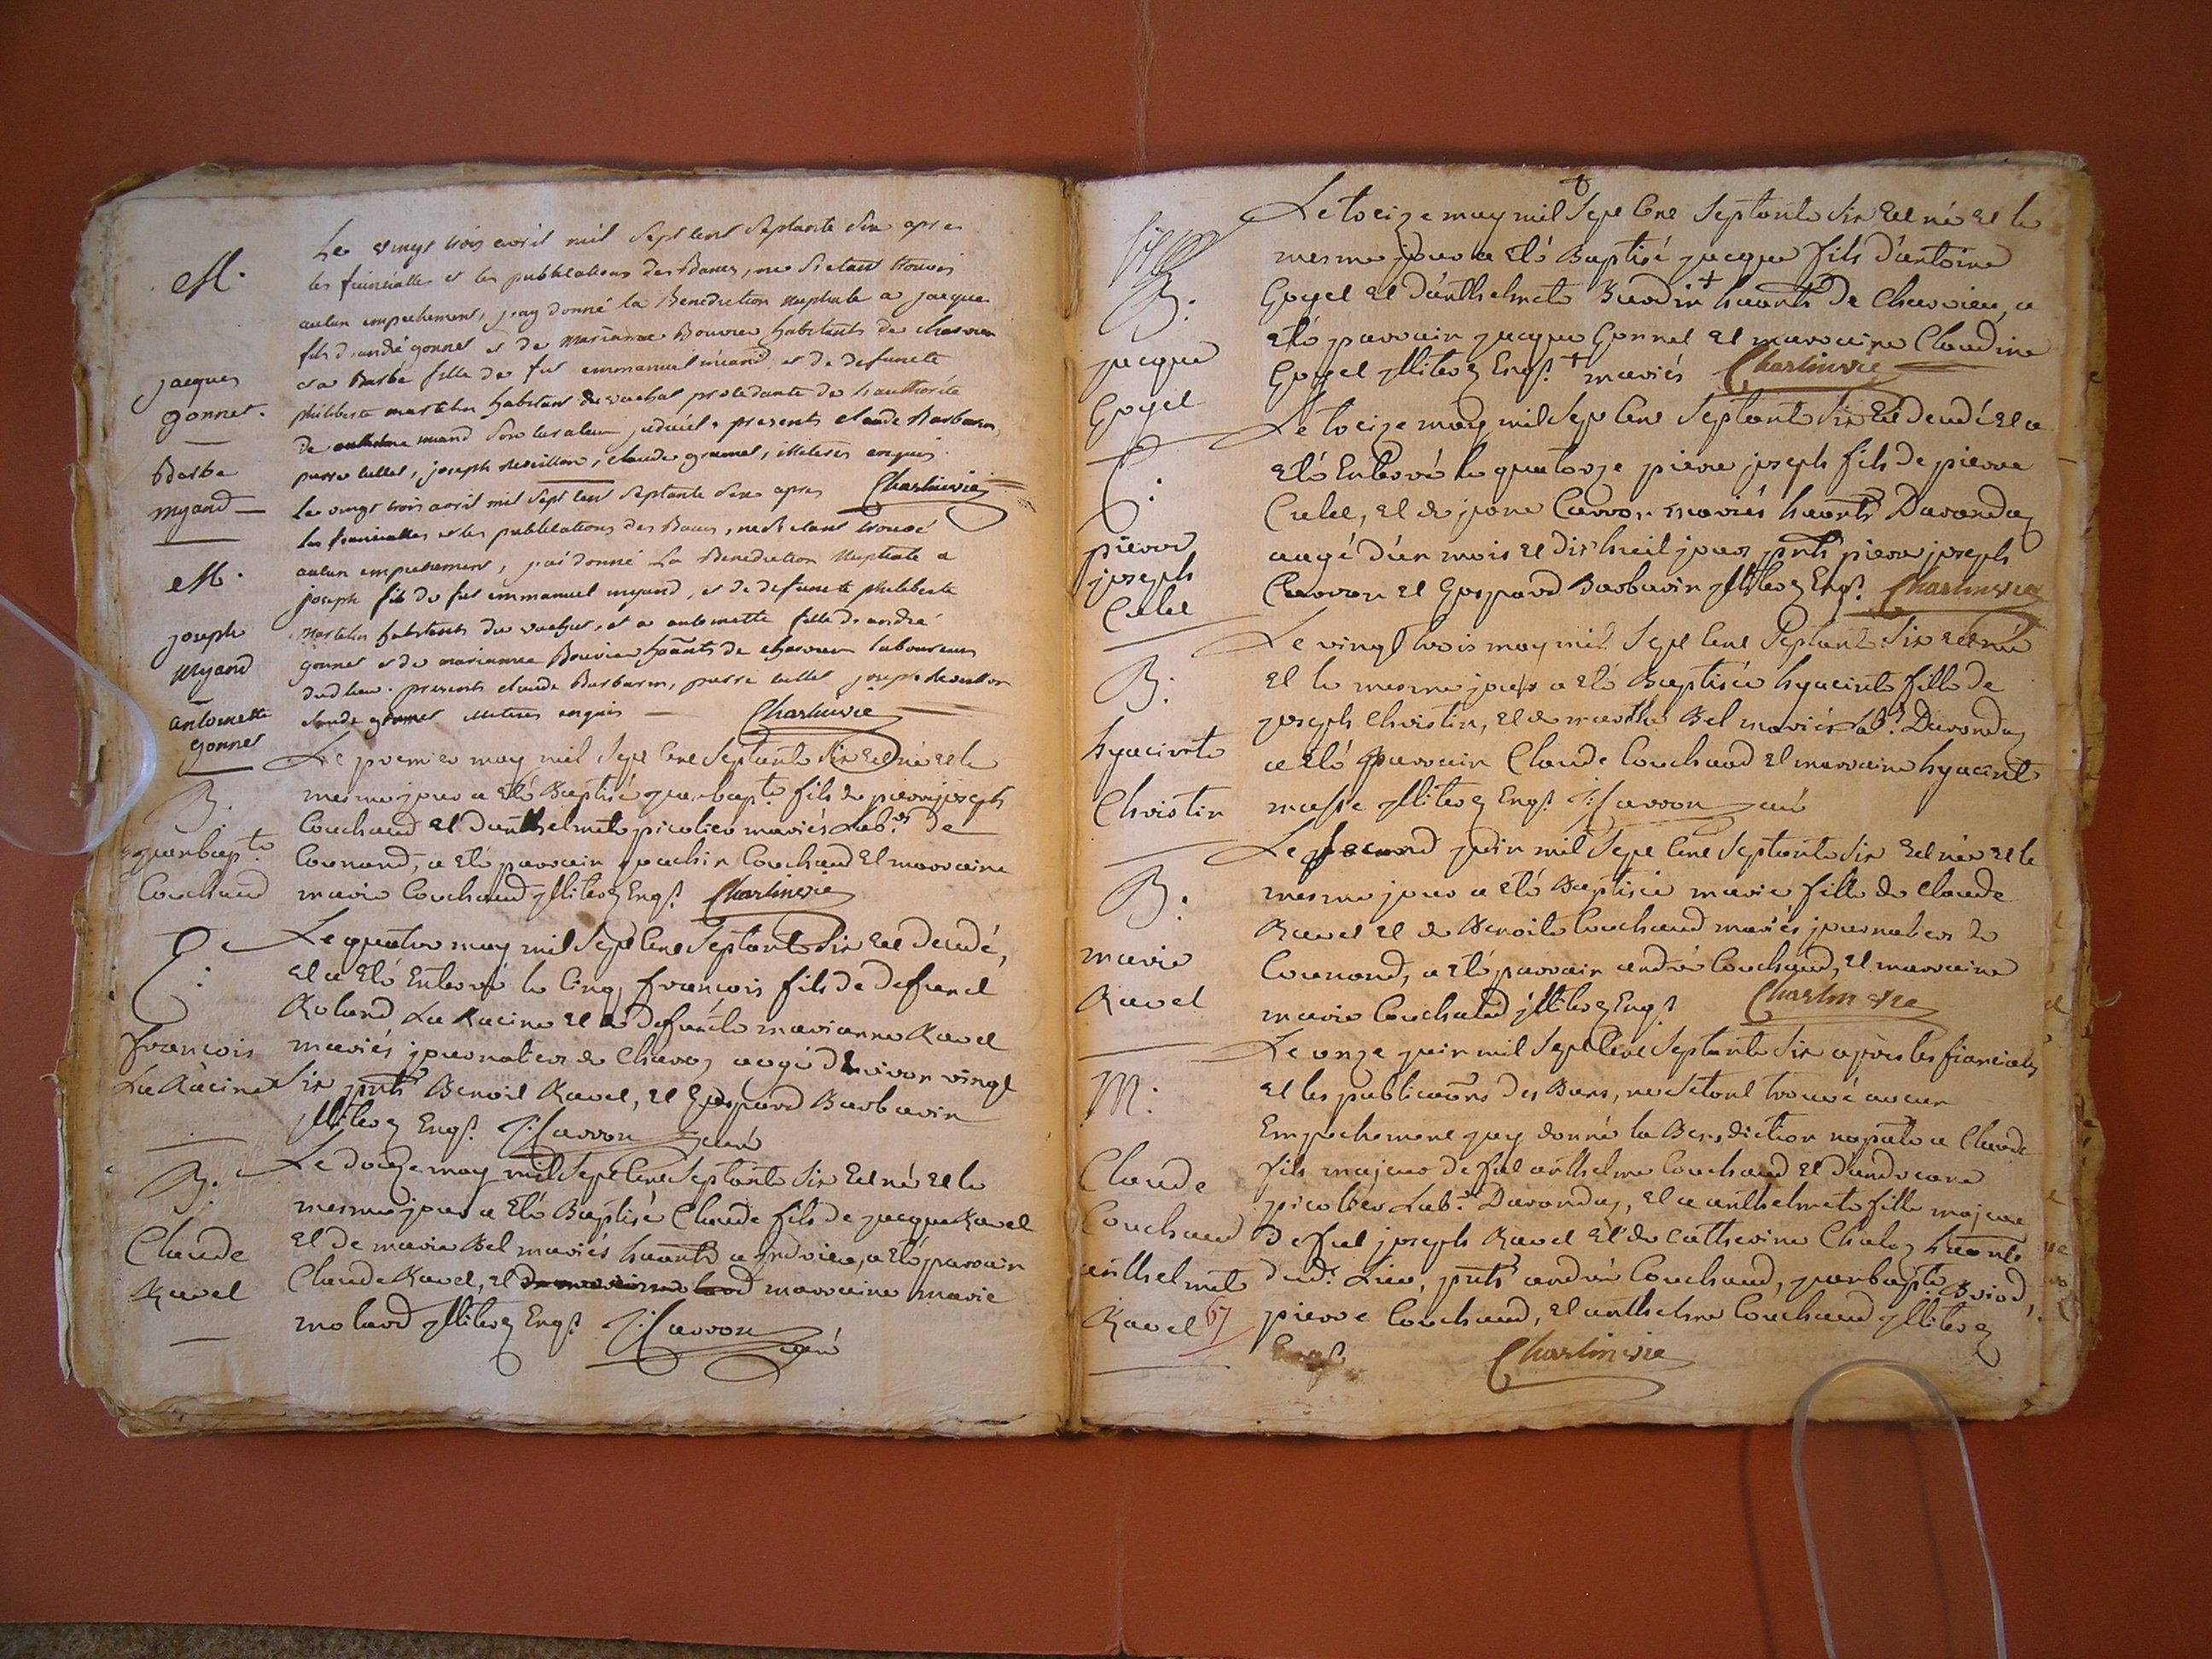 M.
jacques
gonnet.
Barbe
myand
M.
joseph
myand
antoinette
gonnet
B.
jeanbapt.e
Couchaud
françois
La Racine
B.
Claude
Ravel
Le vingt trois avril mil sept cent septante six apre
les fiancialles et les publications des Bancs, ne s'etant trouvés
aucun empechement, j'ay donné la Benediction nuptiale a jacque
fils d'andré gonnet et de mariannae Bouvier habitants de
et a Barbe fille de fut emmanuel miand, et de defuncte
philiberte martelin habitant du vachat procedante de l'authorité
de miand son curateur judiciel. presents claude Barbarin
pierre cullet, joseph , claude , illiterés enquis
le vingt trois avril mil sept cent septante six apres Charlinvie
les fiancialles et les publications des Bancs, ne s'etant trouvé
aucun empechement, j'ai donné La Benediction Nuptiale a
joseph fils de fut emmanuel myand, et de defuncte philiberte
martelin habitants du vachat, et a antoinette fille d'andré
gonnet et de mariannae Bouvier hãants de laboureurs
dud lieu. presents claude Barbarin, pierre cullet joseph
claude illiteres enquis Charlinvie
Le premier may mil sept cent septante six est né et le
mesme jour a eté Baptisé jeanbapt.e fils de pierre joseph
Couchaud et d'anthelmete picolier mariés Lab.rs de
Counand, a eté parrain joachin Couchaud et marraine
marie Couchaud illiterez Enqs. Charlinvie
Le quatre may mil sept cent septante six est decedé,
et a eté Enterré le cinq françois fils de defunct
Roland La Racine et de defuncte marianne Ravel
mariés journaliers de Charoz aagé d'environ vingt
six pnts Benoit Ravel, et Gaspard Barbarin
illiterez Enqs. J: Carron curé
Le douze may mil sept cent septante six est né et le
mesme jour a eté Baptisé Claude fils de jacque Ravel
et de marie Bel mariés haants a andrieu, a eté parrain
Claude Ravel, et marraine marie
molard illiterez Enqs. J: Carron curé
B.
jacque
Goyet
pierre
joseph
Culet
B.
hyacinte
Christin
B.
marie
Ravel
M:
Claude
Couchaud
anthelmete
Ravel 67
Le treize may mil sept cent septante six est né et le
mesme jour a eté Baptisé jacque fils d'antoine
Goyet et d'anthelmete Burdin + haants De Charvieu, a
eté parrain jacque Gonnet et marraine Claudine
Goyet illiterez Enqs. + mariés Charlinvie
Le treize may mil sept cent septante six est decedé et a
eté Enterré le quatorze pierre joseph fils de pierre
Culet, et de jeane Carron mariés haants Darandaz
aagé d'un mois et dixhuit jour pnts pierre joseph
Carron et Gaspard Barbarin illiterez Enqs. Charlinvie
Le vingt trois may mil sept cent septante six est née
et le mesme jour a eté Baptisée hyacinte fille de
joseph Christin, et de marthe Bel mariés Lab.rs Darandaz
a eté parrain Claude Couchaud et marraine hyacinte
masse illiterez Enqs. J: Carron curé
Le second juin mil sept cent septante six est née et le
mesme jour a eté Baptisée marie fille de Claude
Ravel et de Benoite Couchaud mariés journaliers de
Counand, a eté parrain andré Couchaud, et marraine
marie Couchaud illiterez Enqs. Charlinvie
Le onze juin mil sept cent septante six après les fiancialles
et les publicaõns des Bans, ne s'etant trouvé aucun
Empechement j'ay donné la Benediction nuptale a Claude
fils majeur de fut anthelme Couchaud et d'andreane
picolier Lab.rs Darandaz, et a anthelmete fille majeure
de fut joseph Ravel et de Catherine Chaley haante
dud. Lieu, pnts andré Couchaud, jeanbapte Briod,
pierre Couchaud, et anthelme Couchaud illiterez
Enqs. Charlinvie